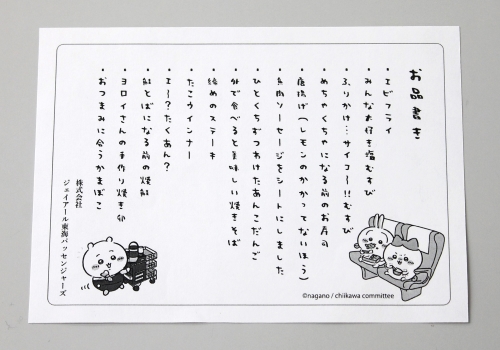 お品書き
・エビフライ
・みんな大好き塩むすび
・ふりかけ…サイコー!!むすび
・めちゃくちゃになる前のお寿司
・唐揚げ(レモンのかかってないほう)
・魚肉ソーセージをシートにしました
・ひとくちずつわけたあんこだんご
・外で食べると美味しい焼きそば
・締めのステーキ
・たこウインナー
・エー?たくあん?
・鮭とばになる前の焼鮭
・ヨロイさんの手作り焼き卵
・おつまみに合うかまぼこ
株式会社
ジェイアール東海パッセンジャーズ
©nagano / chiikawa committee